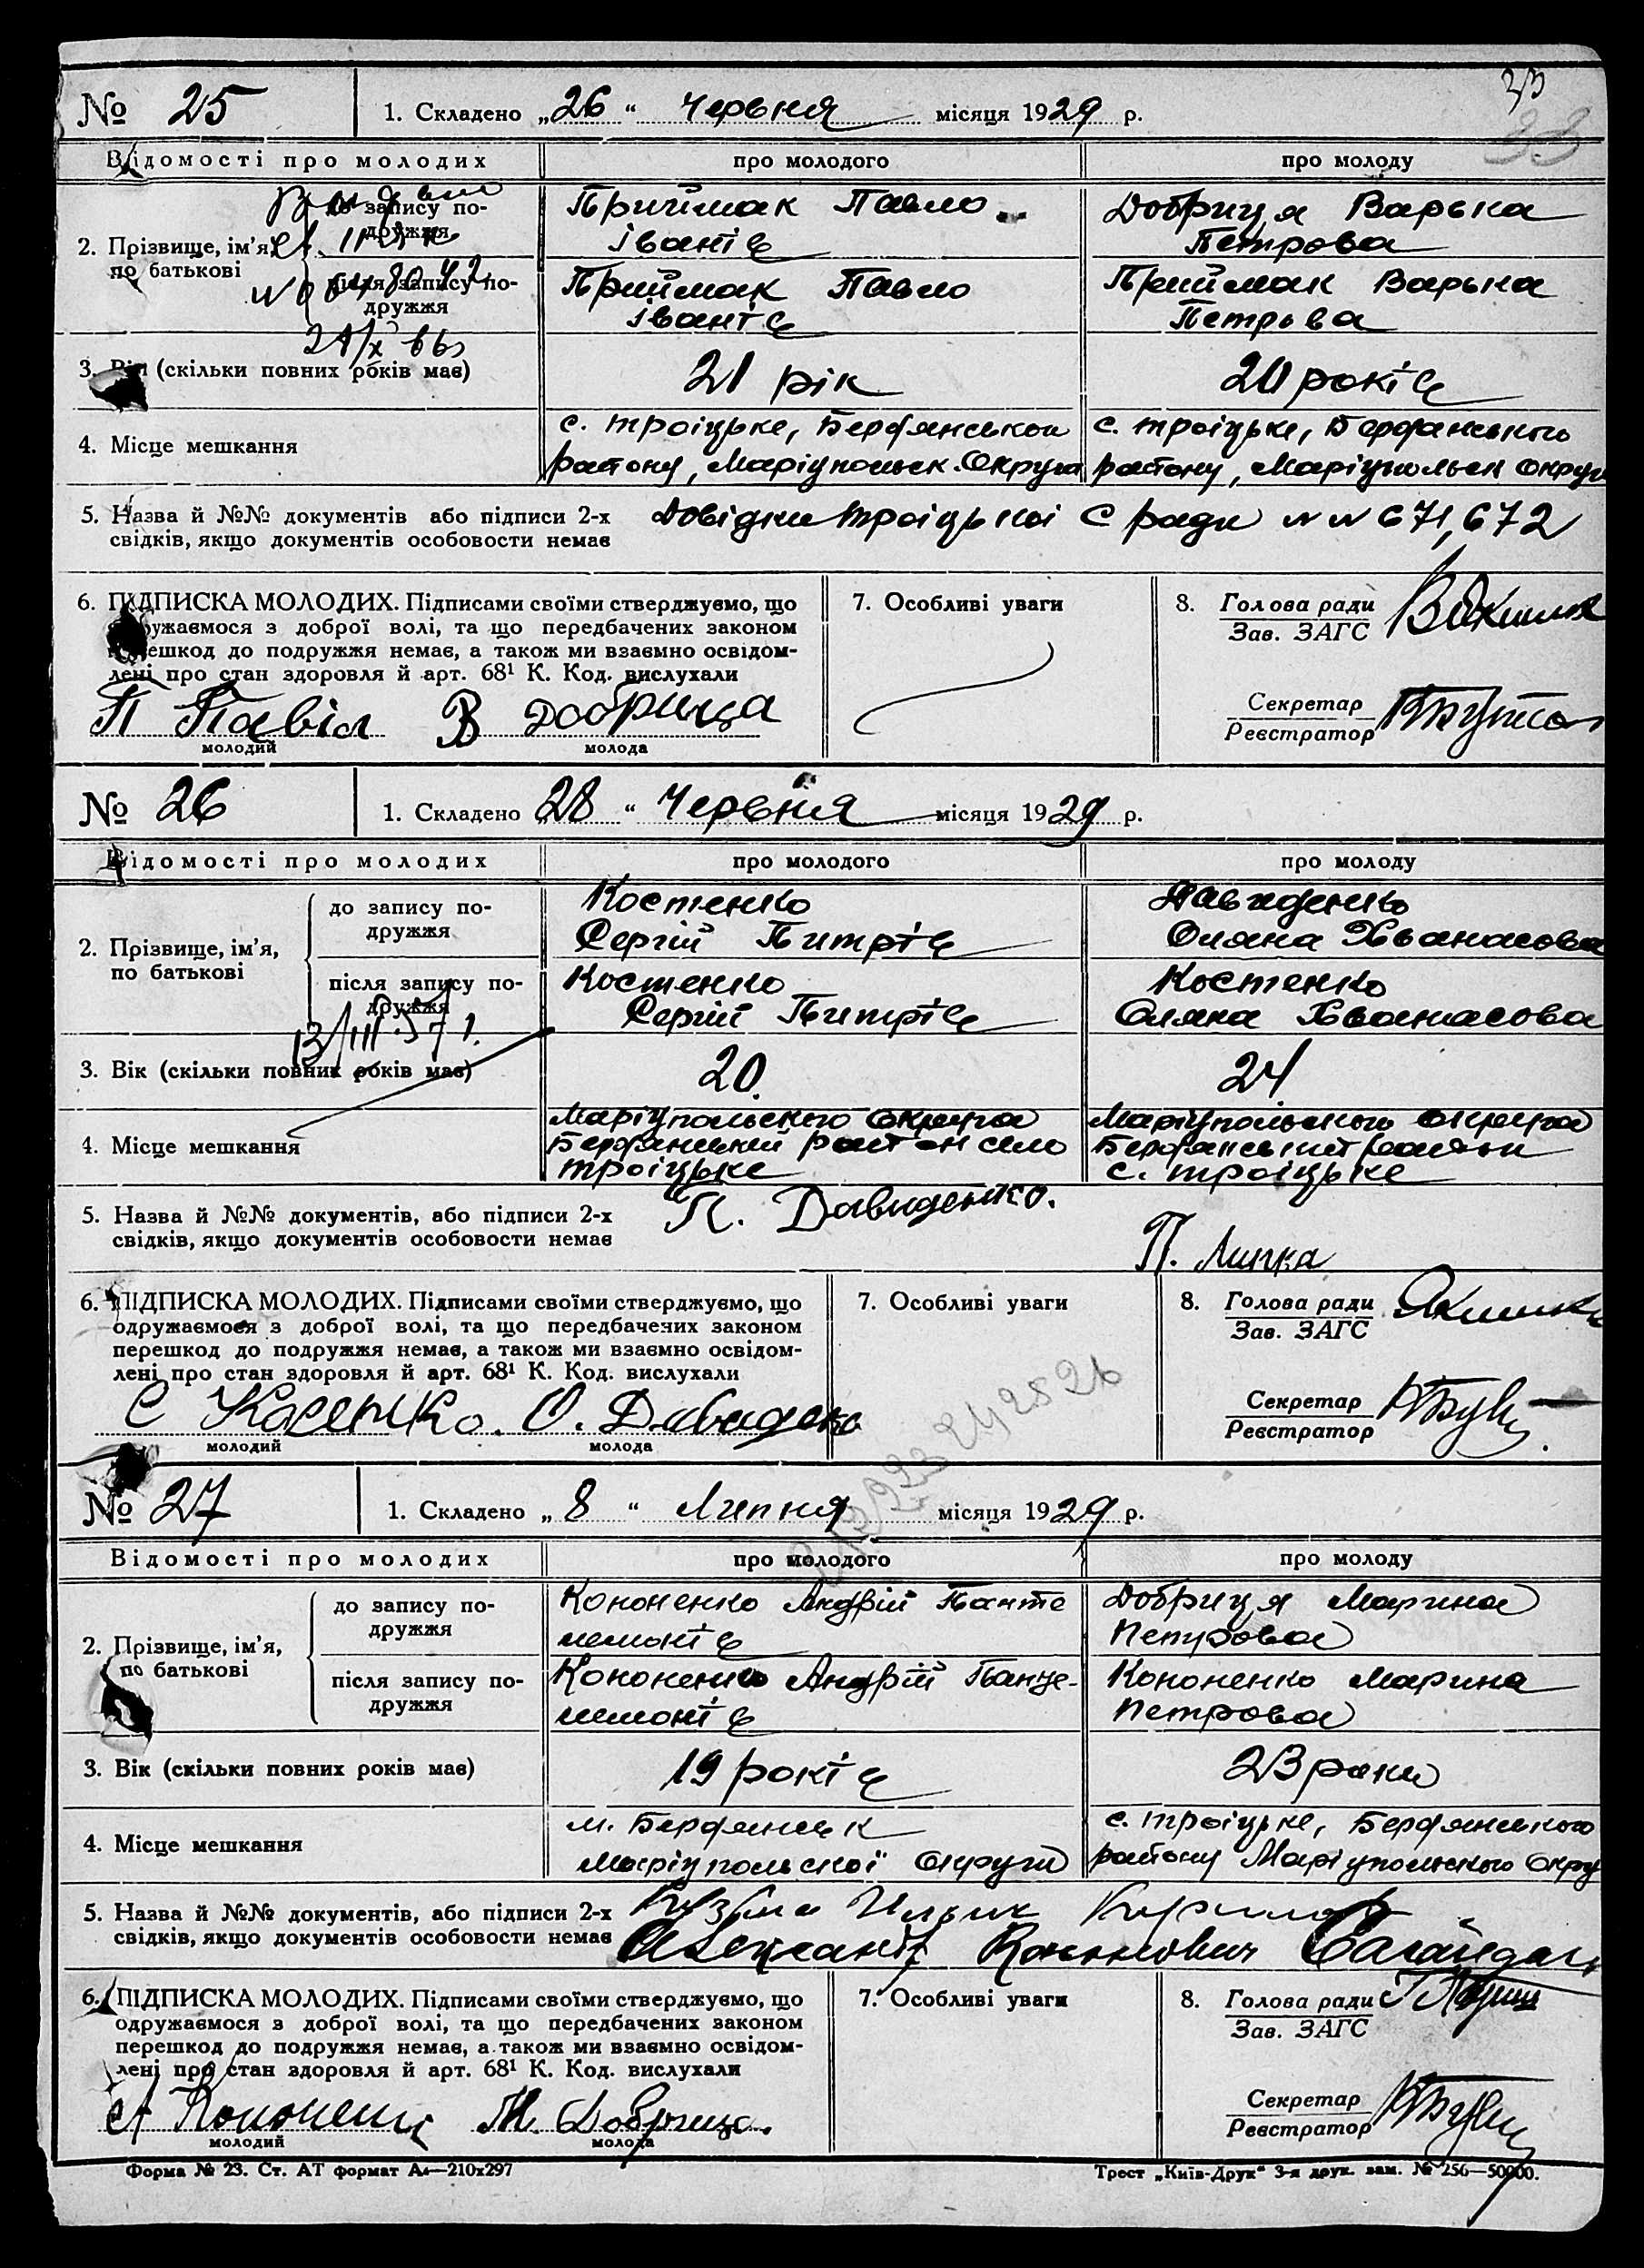 № 25
1. Складено „26“ Червня місяця 1929 р.
Відомості про молодих
про молодого
про молоду
2. Прізвище, ім'я, по батькові
до запису подружжя
Приймак Павло
Іванів
Добриця Варька
Петрова
після запису подружжя
Приймак Павло
Іванів
Приймак Варька
Петрова
3. Вік (скільки повних років має)
21 рік
20 років
4. Місце мешкання
с. Троіцьке, Бердянськои
району, Маріупольск. Округи
с. Троіцьке, Бердянського
району, Маріупольск Округи
5. Назва й №№ документів або підписи 2-х
свідків, якщо документів особовости немає
Довідки Троіцькоі С ради NN 671, 672
6. ПІДПИСКА МОЛОДИХ. Підписами своїми стверджуємо, що
одружаємося з доброї волі, та що передбачених законом
перешкод до подружжя немає, а також ми взаємно освідом-
лені про стан здоровля й арт. 68¹ К. Код. вислухали
П Павіл В Добрица
молодий
молода
7. Особливі уваги
8. Голова ради
Зав. ЗАГС
Секретар
Реєстратор
№ 26
1. Складено 28 “ Червня місяця 1929 р.
Відомості про молодих
про молодого
про молоду
2. Прізвище, ім'я,
по батькові
до запису по-
дружжя
Костенко
Сергій Питрів
Давиденко
Оляна Хванасова
після запису по-
дружжя
Костенко
Сергій Питрів
Костенко
Оляна Хванасова
13/III 57 р.
3. Вік (скільки повних років має)
20.
24
4. Місце мешкання
Маріупольского Округа
Бердянський район село
Троіцьке
Маріупольского Округа
Бердянський район
с. Троіцьке
5. Назва й №№ документів, або підписи 2-х
свідків, якщо документів особовости немає
П. Давиденко.
П. Липка
6. ПІДПИСКА МОЛОДИХ. Підписами своїми стверджуємо, що
одружаємося з доброї волі, та що передбачених законом
перешкод до подружжя немає, а також ми взаємно освідом-
лені про стан здоровля й арт. 68¹ К. Код. вислухали
С Косенко. О. Давиденко
молодий
молода
7. Особливі уваги
8. Голова ради
Зав. ЗАГС
Секретар
Реєстратор
№ 27
1. Складено „ 8 “ Липня місяця 1929 р.
Відомості про молодих
про молодого
про молоду
2. Прізвище, ім'я,
по батькові
до запису по-
дружжя
Кононенко Андрій Панте
лемонів
Добриця Марина
Петрова
після запису по-
дружжя
Кононенко Андрій Панте-
лемонів
Кононенко Марина
Петрова
3. Вік (скільки повних років має)
19 років
23 роки
4. Місце мешкання
м. Бердянськ
Маріупольскої Округи
с. Троіцьке, Бердянського
району Маріупольского Окру
5. Назва й №№ документів, або підписи 2-х
свідків, якщо документів особовости немає
6. ПІДПИСКА МОЛОДИХ. Підписами своїми стверджуємо, що
одружаємося з доброї волі, та що передбачених законом
перешкод до подружжя немає, а також ми взаємно освідом-
лені про стан здоровля й арт. 68¹ К. Код. вислухали
М. Добрица.
молодий
молода
7. Особливі уваги
8. Голова ради
Зав. ЗАГС
Секретар
Реєстратор
Форма № 23. Ст. АТ формат А4—210х297
Трест „Київ-Друк“ 3-я друк. зам. № 256—50000.